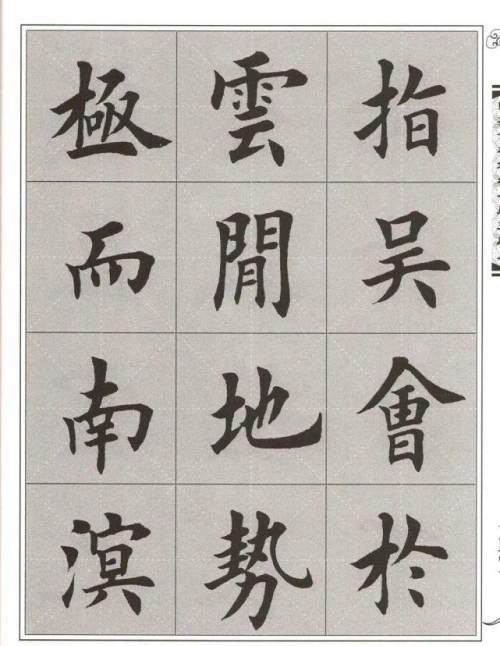 指吴會於
雲閒地勢
極而南溟